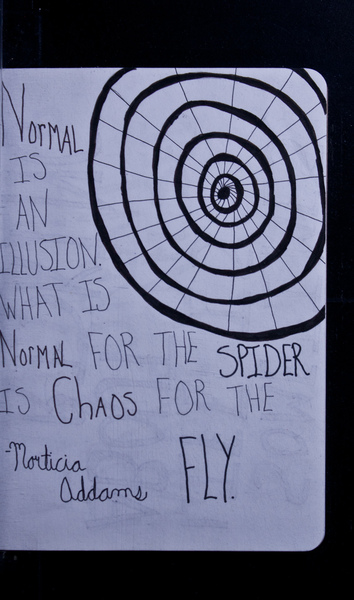 Normal
IS
AN
ILLUSION.
WHAT IS
Normal FOR THE SPIDER
IS CHAOS FOR THE
FLY.
-Morticia
Addams